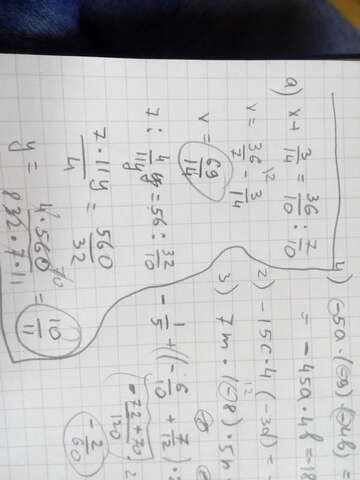 а) x + 3/14 = 36/10 : 7/10
x = 36/7 - 3/14
x = 69/14
7 : 4/11y = 56 : 32/10
7 · 11y / 4 = 560/32
y = 4 · 560 / 832 · 7 · 11 = 10/11
4) -5a · (-9) (-4b) =
= -45a · 4b = 18
2) -15c · 4 (-3d) = -
3) 7m · (-8) · 5n
-1/5 + ((-6/10 + 7/12) ·
-72 + 70 / 120
-2/60